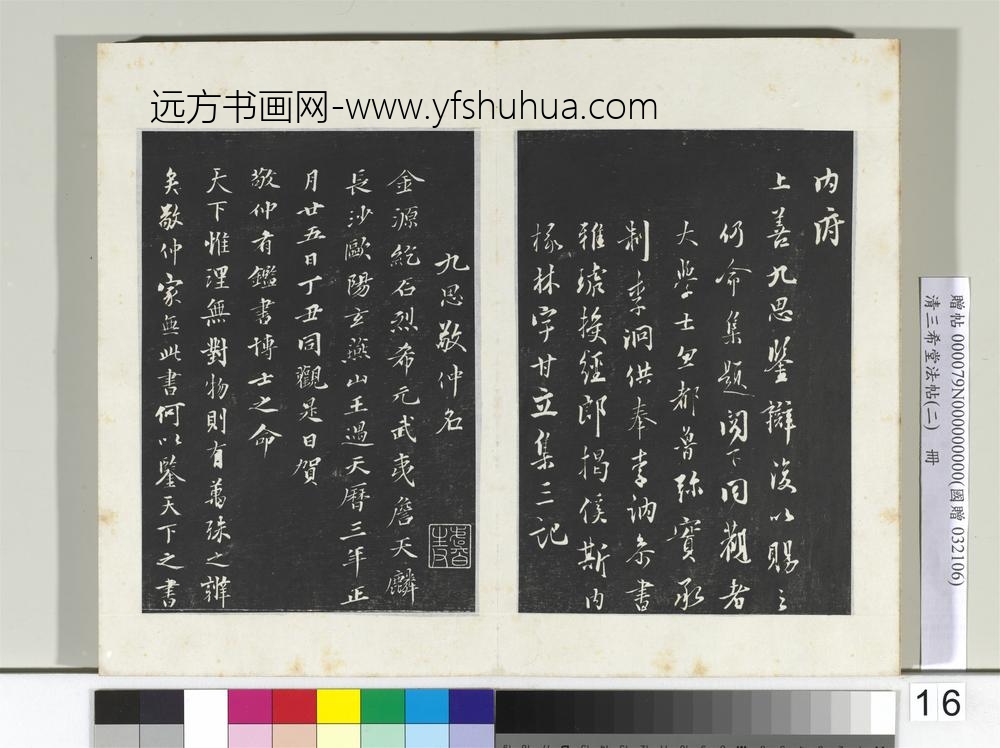 远方书画网-www.yfshuhua.com
内府
上善九思鉴辯後以賜之
仍命集題閱下同觀者
大學士忽都魯弥實承
制李洞供奉李訥參書
雅琥授經郎揭傒斯内
掾林宇甘立集三記
九思敬仲名
金源紇石烈希元武夷詹天麟
長沙歐陽玄燕山王遇天曆三年正
月廿五日丁丑同觀是日賀
敬仲有鑑書博士之命
天下惟理無對物則有萬殊之辯
矣敬仲家無此書何以鑒天下之書
贈帖 000079N000000000(國贈 032106)
清三希堂法帖(二) 冊
16